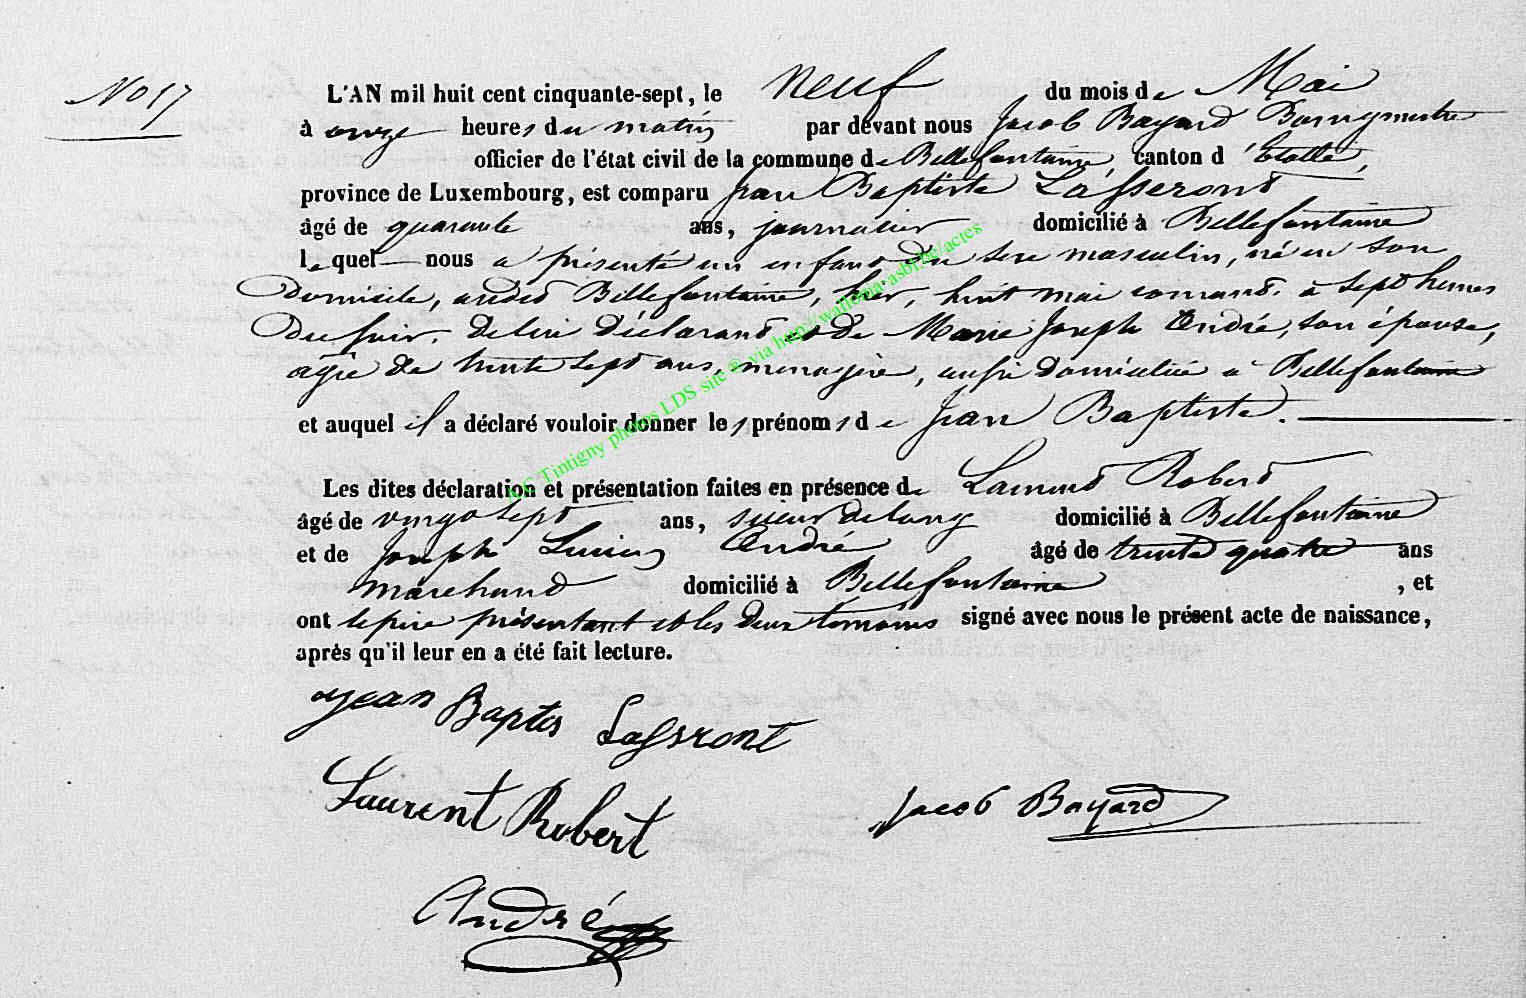 No 17
L'AN mil huit cent cinquante-sept, le neuf du mois de Mai
à onze heures du matin par devant nous Jacob Bayard Bourgmestre
officier de l'état civil de la commune de Bellefontaine canton d'Etalle,
province de Luxembourg, est comparu Jean Baptiste Lafseront
âgé de quarante ans, journalier domicilié à Bellefontaine
lequel nous a présenté un enfant du sexe masculin, né en son
domicile, audit Bellefontaine, hier, huit mai courant à sept heures
du soir, de lui déclarant et de Marie Joseph André, son épouse,
âgée de trente sept ans, menagère, aufsi domiciliée à Bellefontaine
et auquel il a déclaré vouloir donner les prénoms de Jean Baptiste.
Les dites déclaration et présentation faites en présence de Laurent Robert
âgé de vingt sept ans, scieur de long domicilié à Bellefontaine
et de Joseph Lucien André âgé de trente quatre ans
marchand domicilié à Bellefontaine, et
ont le père présentant et les deux temoins signé avec nous le présent acte de naissance,
après qu'il leur en a été fait lecture.
Jean Baptis Lafsront
Laurent Robert
Jacob Bayard
André
A.C Tintigny photos LDS site ® via http://wallonia-asbl.be/actes